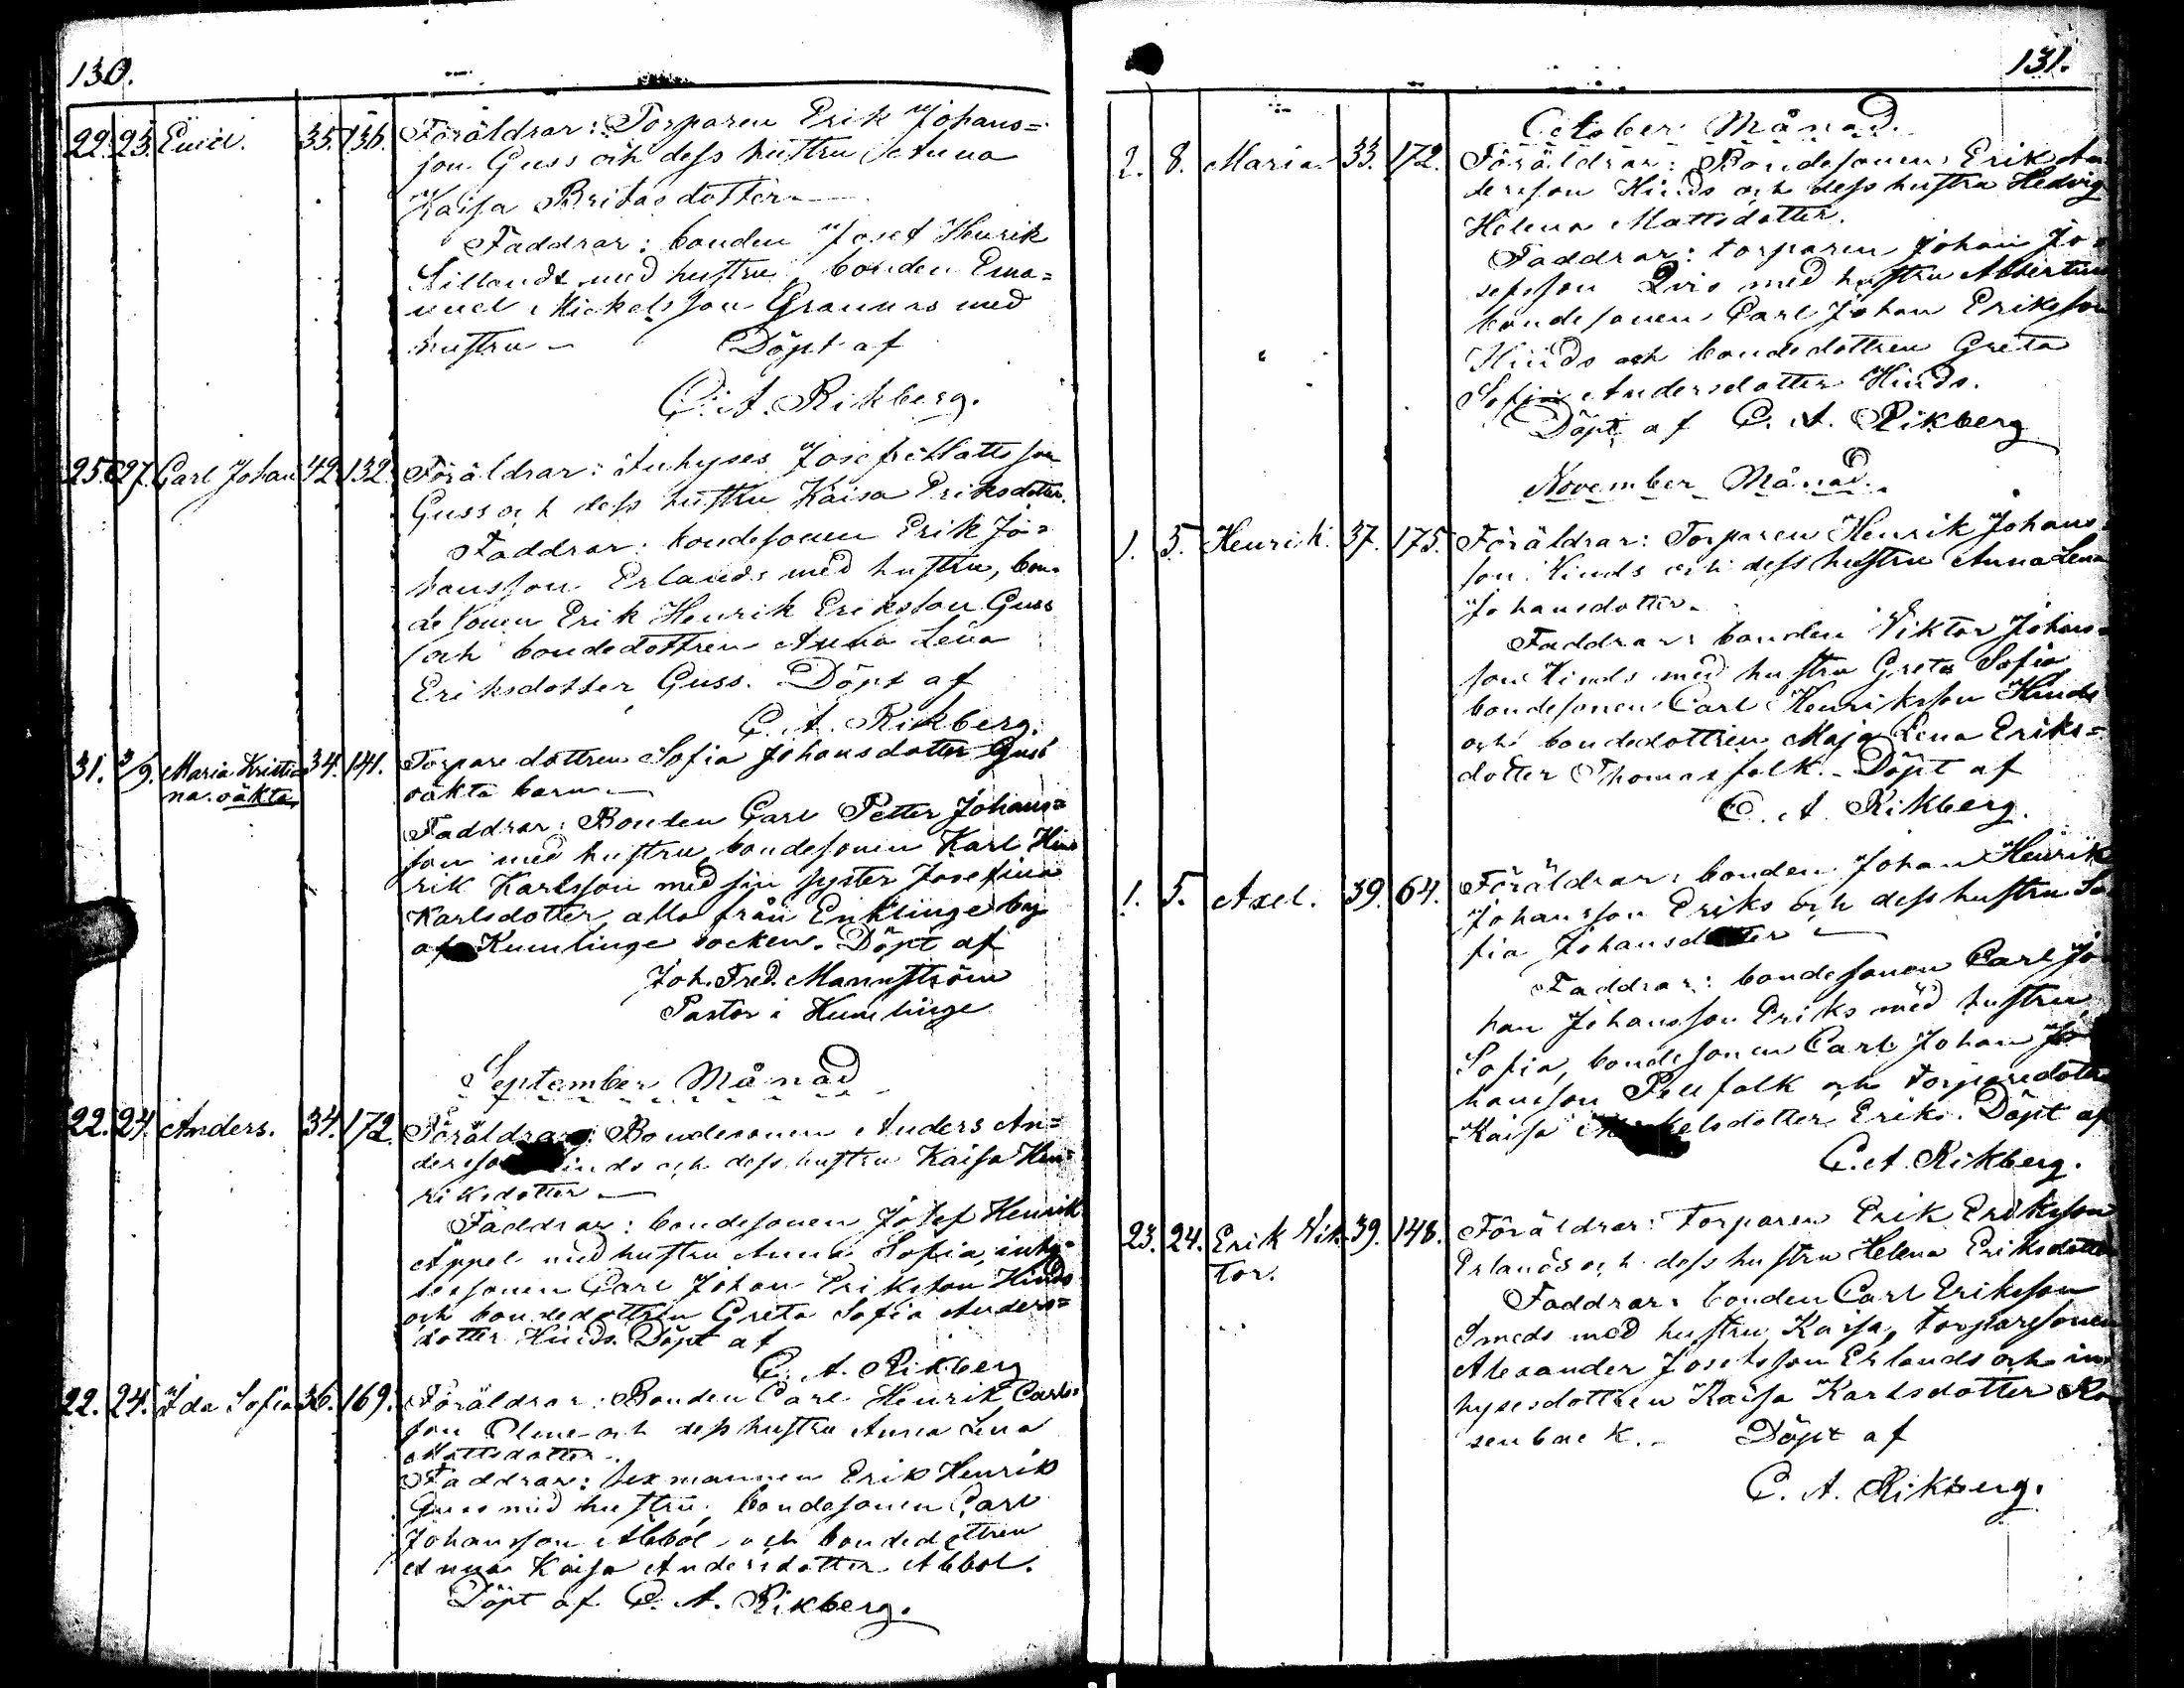 130.
22. 23. Emil. 35. 136. Föräldrar: Torparen Erik Johans=
son Guss och dess hustru Anna
Kaisa Britasdotter
Faddrar: bonden Josef Henrik
med hustru, bonden Ema=
nuel Mickelsson Grannas med
hustru Döpt af
C. A. Rikberg.
25. 27. Carl Johan 42. 132. Föräldrar: Inhyses Josef Mattsson
Guss och dess hustru Kaisa Eriksdotter.
Faddrar: bondesonen Erik Jo=
hansson Erlands med hustru, bon
desonen Erik Henrik Eriksson Guss
och bondedottren Anna Lena
Eriksdotter Guss. Döpt af
C. A. Rikberg.
31. 3/9. Maria Kristi= 34. 141. Torparedottren Sofia Johansdotter Guss
na. oäkta oäkta barn
Faddrar: Bonden Carl Petter Johans=
son med hustru, bondesonen Karl Hen
rik Karlsson med sin syster Josefina
Karlsdotter, alla från Enklinge by
af Kumlinge socken. Döpt af
Joh. Fred. Mannström
Pastor i Kumlinge
September Månad
22. 24. Anders. 34. 172. Föräldrar: Bondesonen Anders An=
dersson Hinds och dess hustru Kaisa Hen=
riksdotter
Faddrar: bondesonen Josef Henrik
Äppel med hustru Anna Sofia, inhy=
sessonen Carl Johan Eriksson Hinds
och bondedottren Greta Sofia Anders=
dotter Hinds. Döpt af
C. A. Rikberg
22. 24. Ida Sofia 36. 169. Föräldrar: Bonden Carl Henrik Carls=
son och dess hustru Anna Lena
Mattsdotter.
Faddrar: Sexmannen Erik Henrik
Guss med hustru, bondesonen Carl
Johansson Abbol och bondedottren
Anna Kaisa Andersdotter Abbol.
Döpt af C. A. Rikberg.
131.
October Månad.
2. 8. Maria. 33. 172. Föräldrar: Bondesonen Erik An
dersson Hinds och dess hustru Hedvig
Helena Mattsdotter.
Faddrar: torparen Johan Jo=
sefsson Qvis med hustru Albertina
bondesonen Carl Johan Eriksson
Hinds och bondedottren Greta
Sofia Andersdotter Hinds.
Döpt af C. A. Rikberg
November Månad.
1. 5. Henrik. 37. 175. Föräldrar: Torparen Henrik Johans=
son Hinds och dess hustru Anna Lena
Johansdotter.
Faddrar: bonden Viktor Johans=
son Hinds med hustru Greta Sofia
bondesonen Carl Henriksson Hinds
och bondedottren Maja Lena Eriks=
dotter Thomasfolk. Döpt af
C. A. Rikberg.
1. 5. Axel. 39. 64. Föräldrar: bonden Johan Henrik
Johansson Eriks och dess hustru So
fia Johansdotter
Faddrar: bondesonen Carl Jo
han Johansson Eriks med hustru
Sofia, bondesonen Carl Johan Jo
hansson Pellfolk och torparedottr
Kaisa Eriks. Döpt af
C. A. Rikberg.
23. 24. Erik Vik= 39. 148. Föräldrar: Torparen Erik Eriksson
tor. Erlands och dess hustru Helena Eriksdotter
Faddrar: bonden Carl Eriksson
Smeds med hustru Kaisa, torparsonen
Alexander Josefsson Erlands och in
hysesdottren Kaisa Karlsdotter Ro
senback. Döpt af
C. A. Rikberg.